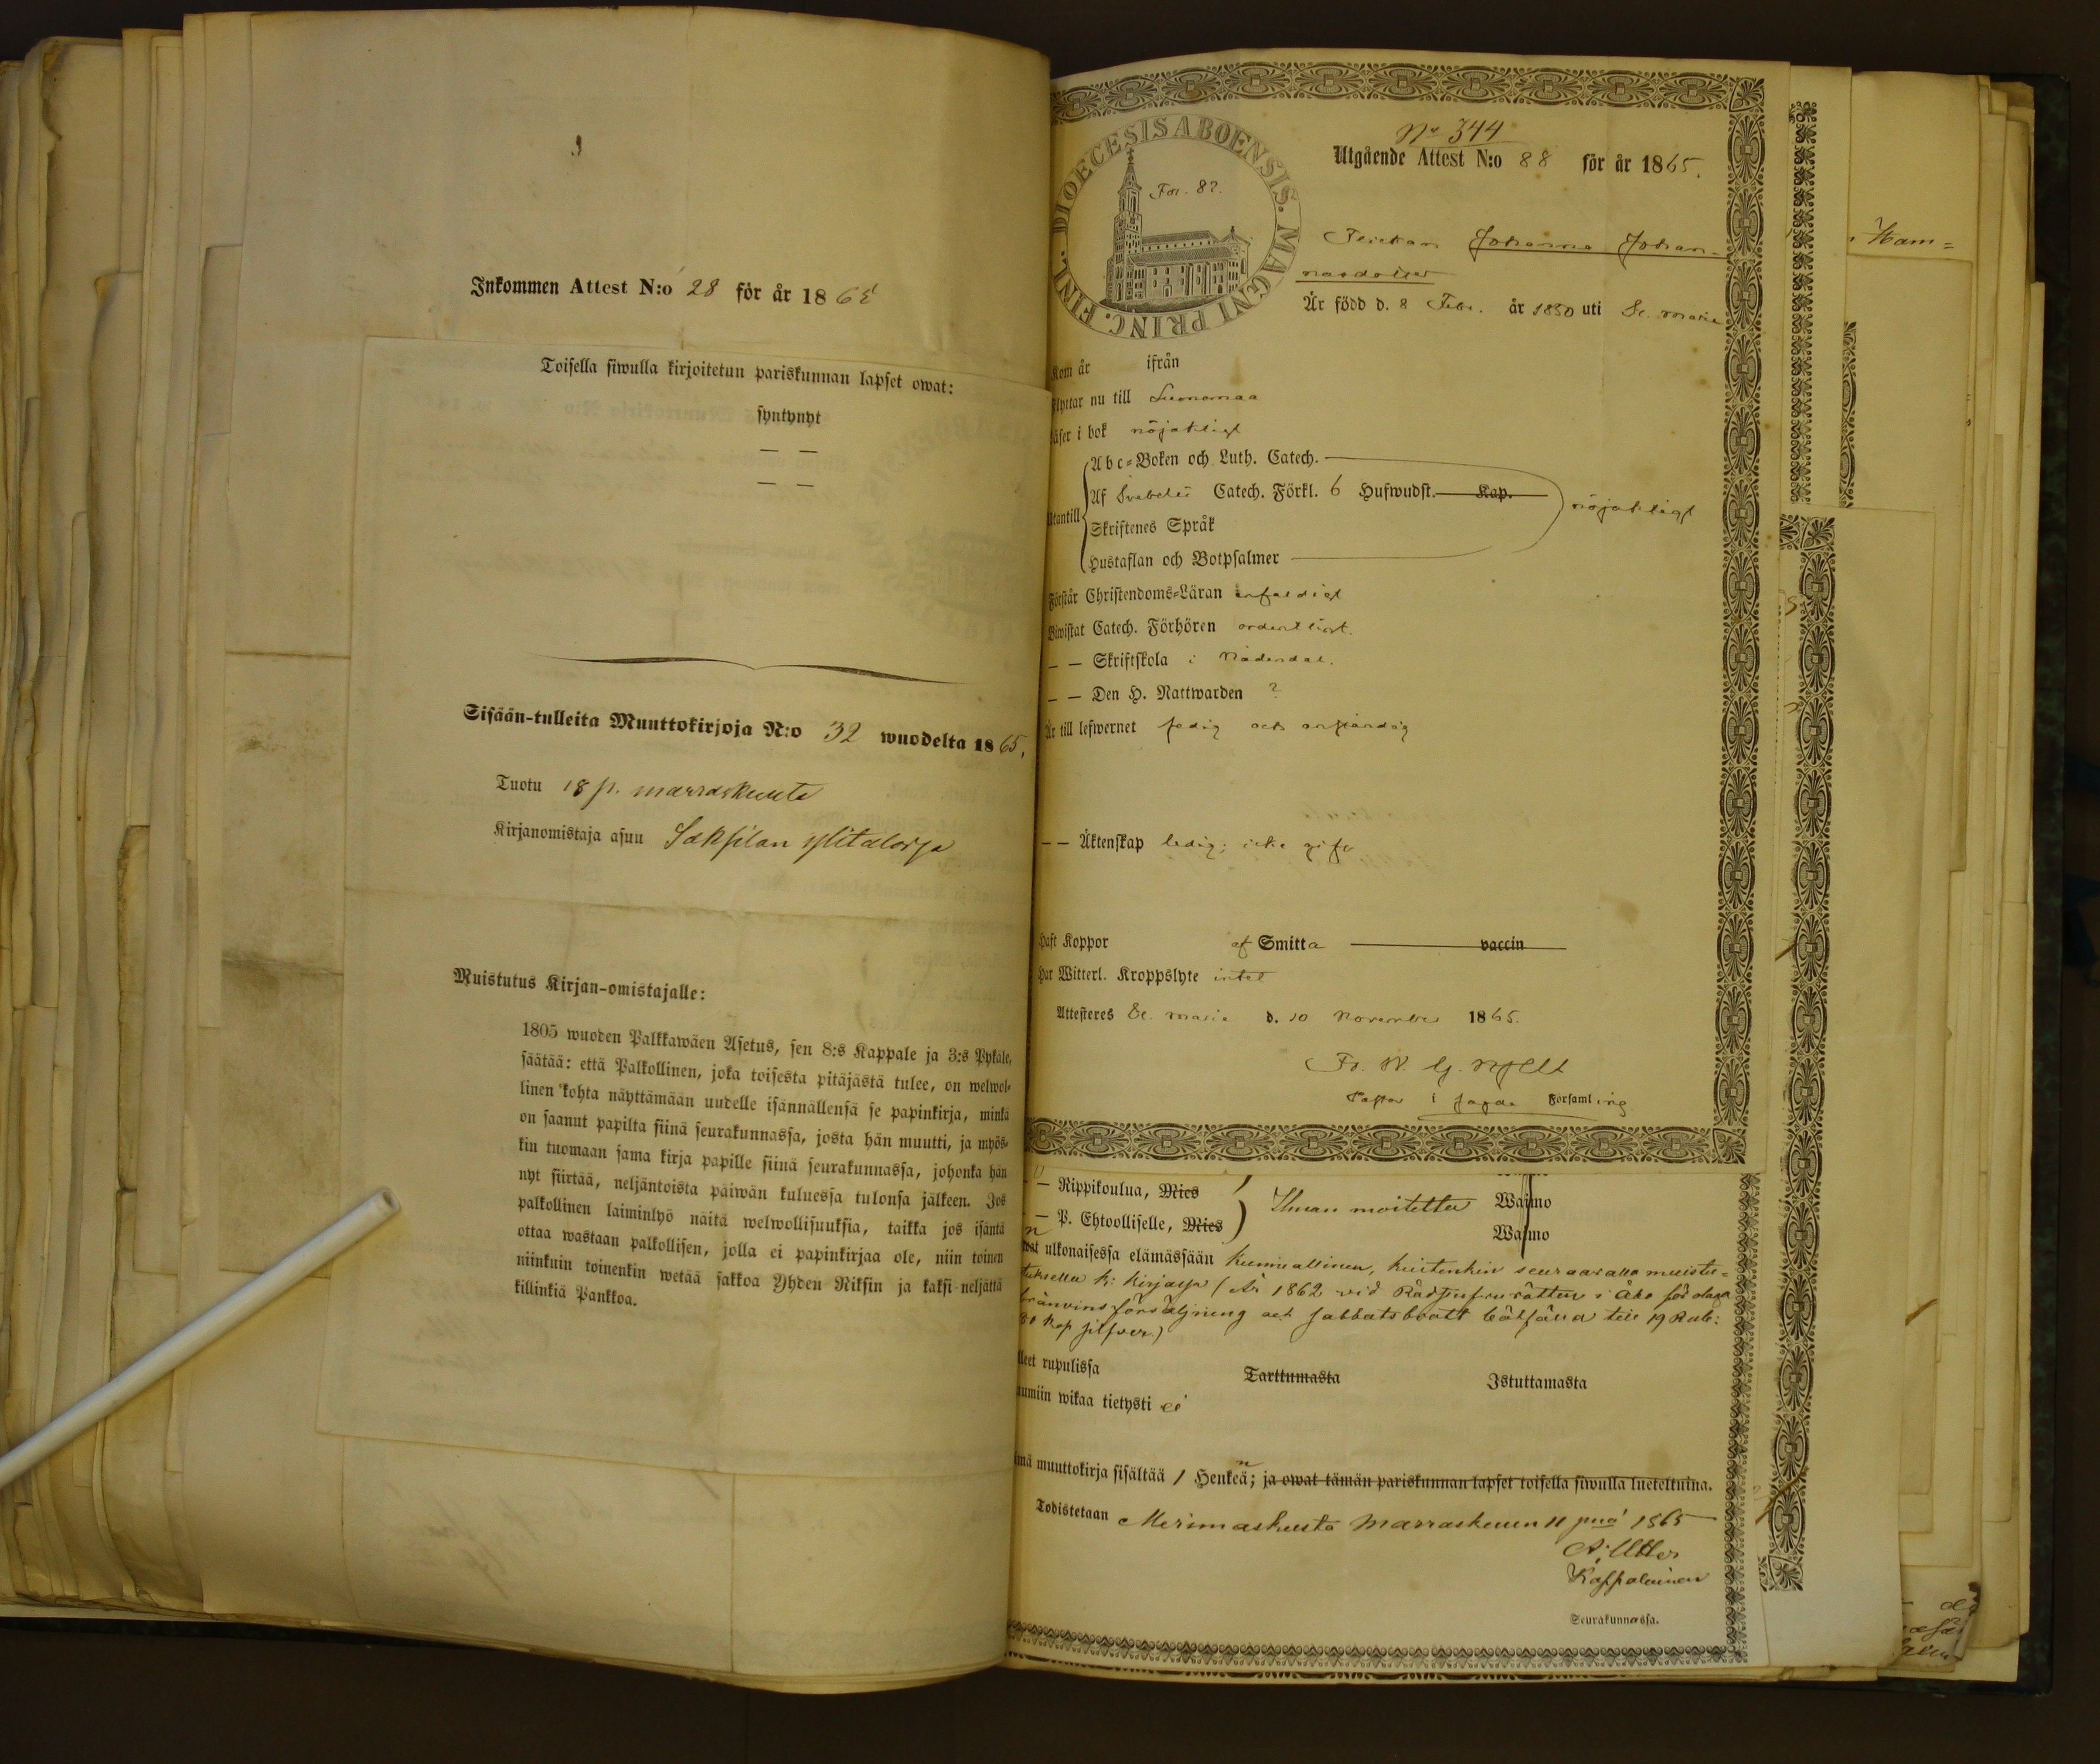 Inkommen Attest N:o 28 för år 186
Toisella siwulla kirjoitetun pariskunnan lapset owat:
syntynyt
— —
— —
Sisään-tulleita Muuttokirjoja N:o 32 wuodelta 1865.
Tuotu 18 p. marraskuuta
Kirjanomistaja asuu
Muistutus Kirjan-omistajalle:
1805 wuoden Palkkawäen Asetus, sen 8:s Kappale ja 3:s Pykäle,
säätää: että Palkollinen, joka toisesta pitäjästä tulee, on welwol-
linen kohta näyttämään uudelle isännällensä se papinkirja, minkä
on saanut papilta siinä seurakunnassa, josta hän muutti, ja myös-
kin tuomaan sama kirja papille siinä seurakunnassa, johonka hän
nyt siirtää, neljäntoista päiwän kuluessa tulonsa jälkeen. Jos
palkollinen laiminlyö näitä welwollisuuksia, taikka jos isäntä
ottaa wastaan palkollisen, jolla ei papinkirjaa ole, niin toinen
niinkuin toinenkin wetää sakkoa Yhden Riksin ja kaksi neljättä
killinkiä Pankkoa.
DIOECESIS ABOENSIS. MAGNI PRINC. FINL.
No 344
Utgående Attest N:o 88 för år 1865.
Johanna Johan-
Är född d. 8 Febr. år 1850 uti St. Marie
Kom år ifrån
Flyttar nu till
Läser i bok nöjaktigt
Abc-Boken och Luth. Catech.
Af Svebelii Catech. Förkl. 6 Hufwudst. Kap.
Utantill nöjaktigt
Skriftenes Språk
Hustaflan och Botpsalmer
Förstår Christendoms-Läran enfaldigt
Biwistat Catech. Förhören ordentligt.
— — Skriftskola i Nådendal.
— — Den H. Nattwarden ?
Är till lefwernet sedig och anständig
— — Äktenskap ledig; icke gift
Haft Koppor af Smitta vaccin
Har Witterl. Kroppslyte intet
Attesteres St. Marie d. 10 November 1865.
Pastor i Forsamling
— Rippikoulua, Mies
— P. Ehtoolliselle, Mies Ilman moitetta Waimo
Waimo
ulkonaisessa elämässään kunniallinen, kuitenkin seuraavalla muistu-
tuksella k: kirjassa (År 1862 vid i Åbo för olaga
bränvins försäljning och sabbatsbrott bötfälld till 19 Rub:
80 kop silfver.)
rupulissa Tarttumasta Istuttamasta
wikaa tietysti ei
muuttokirja sisältää 1 Henkeä; ja owat tämän pariskunnan lapset toisella siwulla lueteltuina.
Todistetaan Merimaskusta Marraskuun 11 pnä 1865
Kappalainen
Seurakunnassa.
Ham=